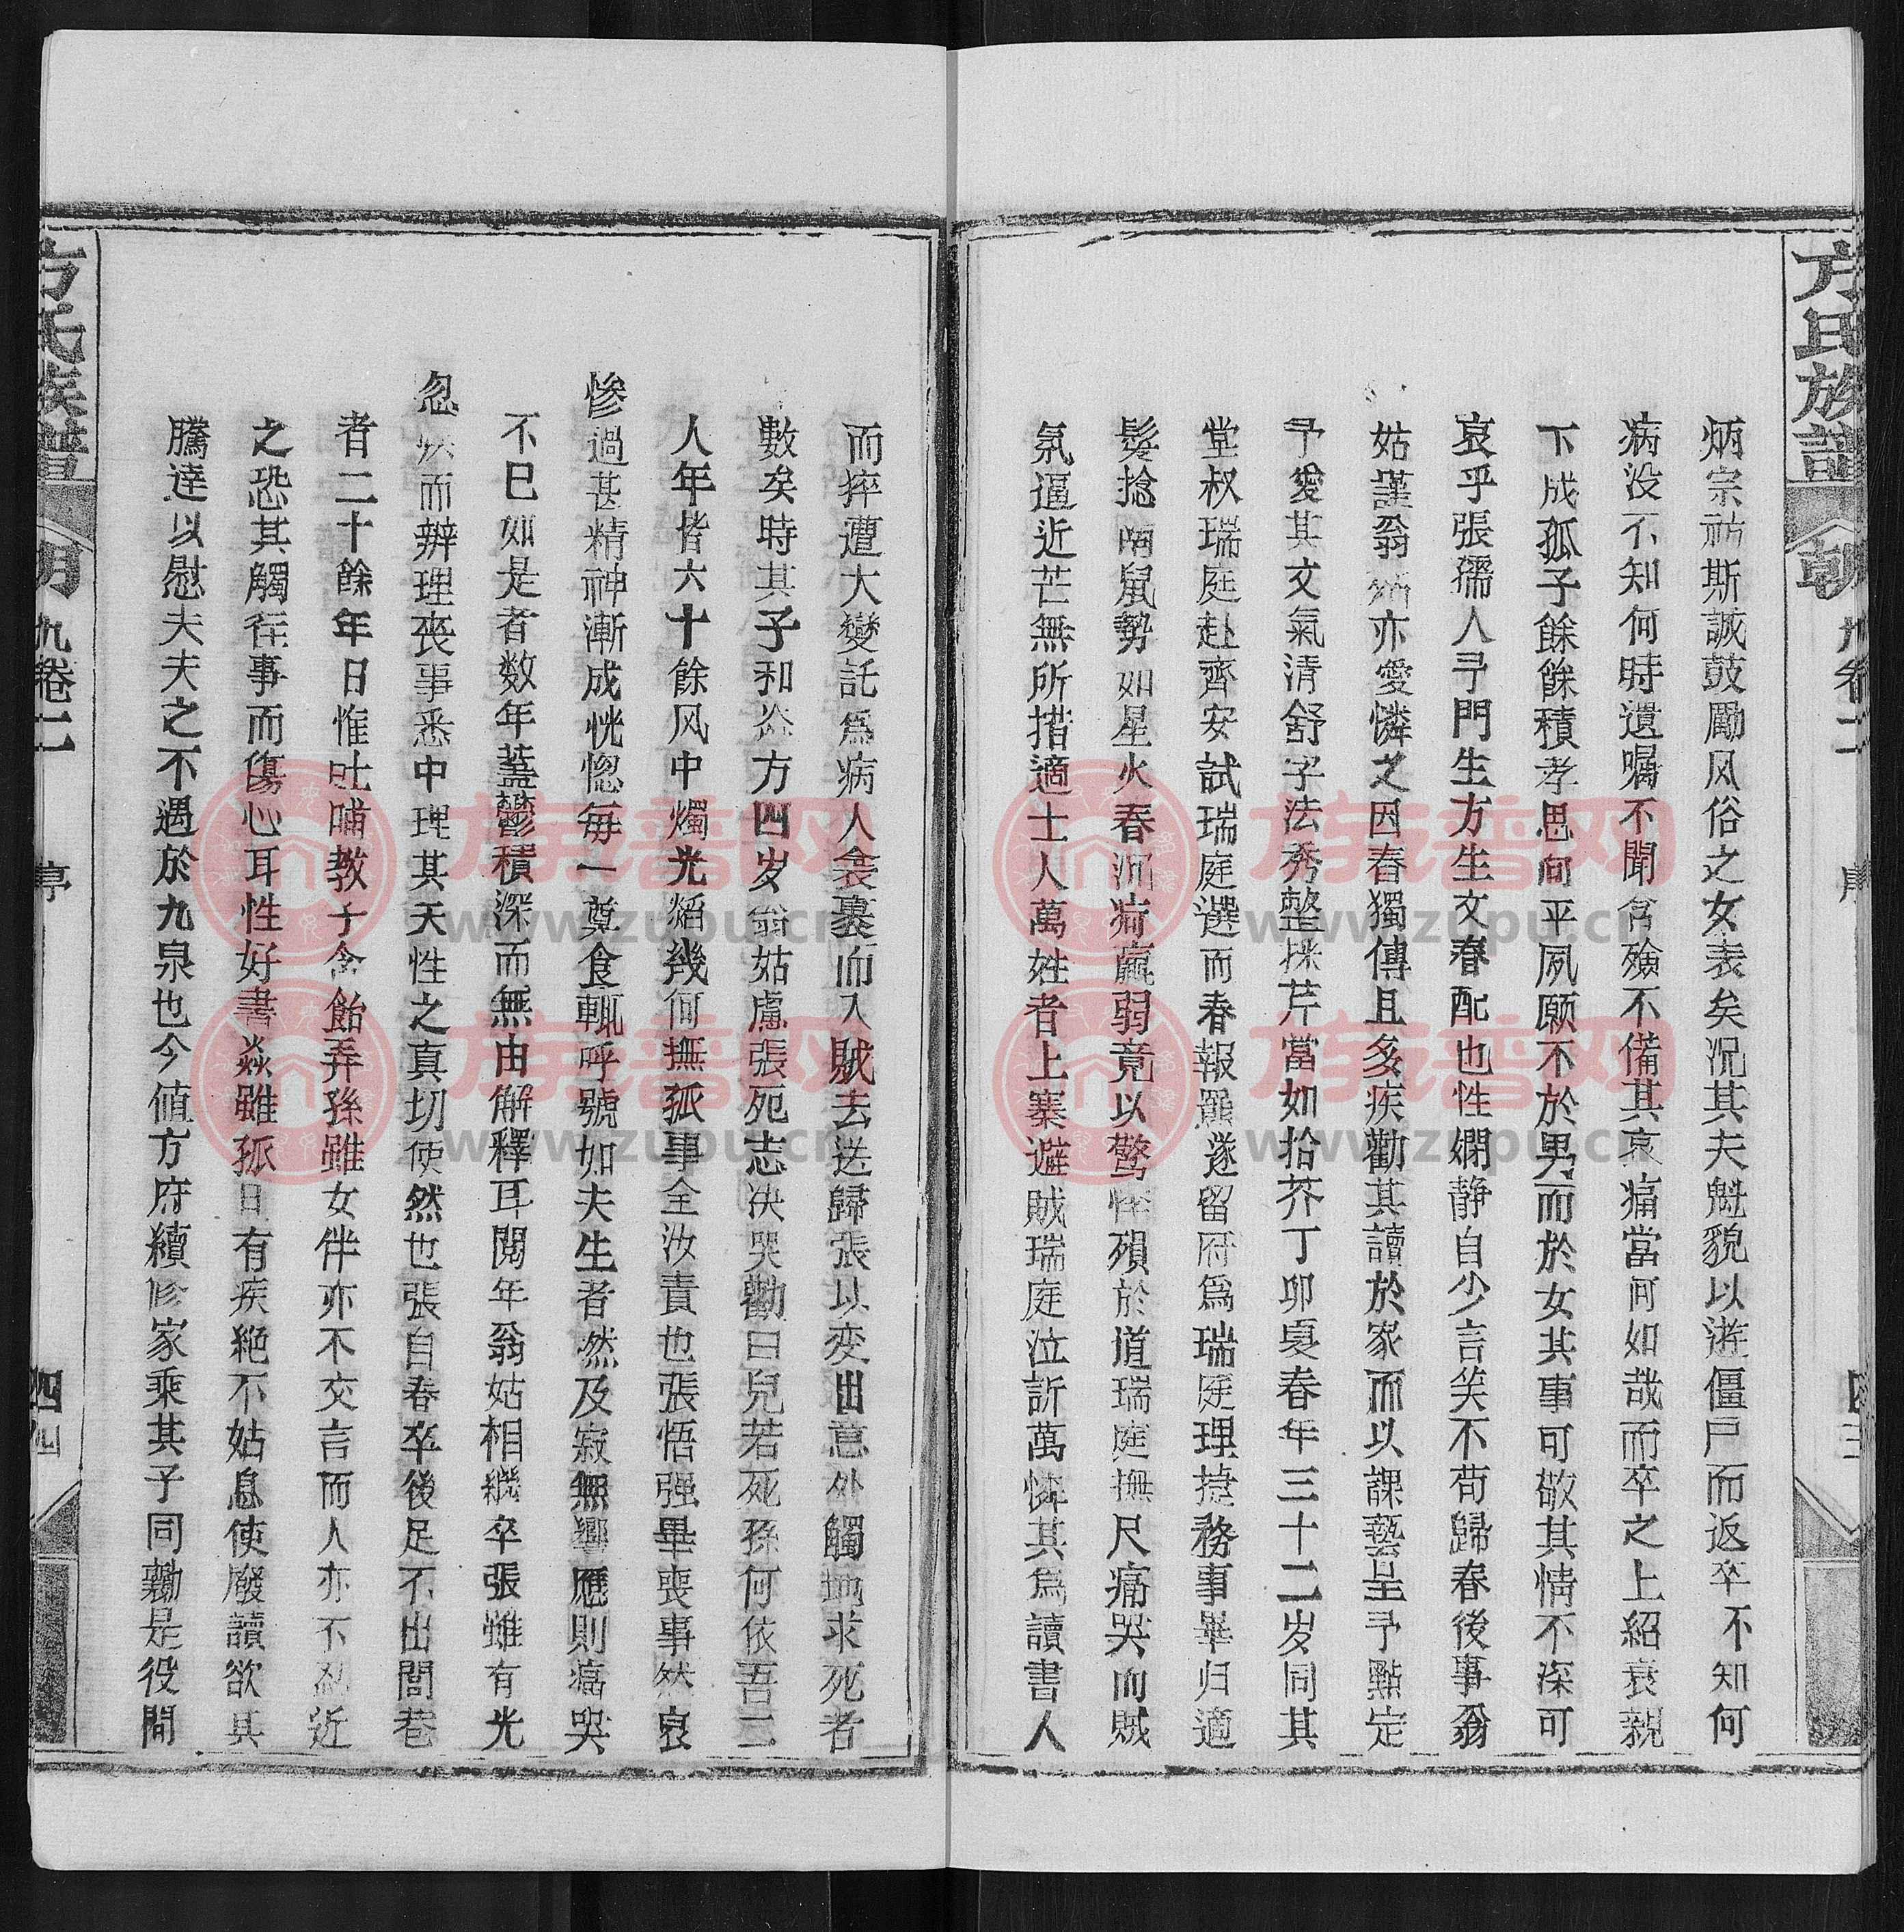 方氏族譜
九卷二
炳宗祊斯誠鼓勵风俗之女表矣况其夫魁貌以遊僵尸而返卒不知何
病没不知何時遺囑不聞含殮不備其哀痛當何如哉而卒之上紹衰親
下成孤子餘餘積孝思向平夙願不於男而於女其事可敬其情不深可
哀乎張孺人予門生方生文春配也性嫻静自少言笑不苟歸春後事翁
姑謹翁姑亦愛憐之因春獨傳且多疾勸其讀於家而以課藝呈予點定
予愛其文氣清舒字法秀整採芹當如拾芥丁卯夏春年三十二岁同其
堂叔瑞庭赴齊安試瑞庭選而春報羆遂留府爲瑞庭理捷務事畢归適
髮捻南鼠勢如星火春沉疴羸弱竟以驚悴殞於道瑞庭撫尺痛哭而賊
氛逼近芒無所措適士人萬姓者上寨避賊瑞庭泣訴萬憐其爲讀書人
而猝遭大變託爲病人衾裹而入賊去送歸張以变出意外觸地求死者
數矣時其子和炎方四岁翁姑慮張死志决哭勸曰兒若死孫何依吾二
人年皆六十餘风中燭光焰幾何撫孤事全汝責也張悟强畢喪事然哀
慘過甚精神漸成恍惚每一奠食輒呼號如夫生者然及寂無響應則痛哭
不已如是者数年蓋鬱積深而無由解釋耳閱年翁姑相繼卒張雖有光
忽然而辦理丧事悉中理其天性之真切使然也張自春卒後足不出閭巷
者二十餘年日惟吐哺教子含飴弄孫雖女伴亦不交言而人亦不忍近
之恐其觸往事而傷心耳性好書焱雖孤日有疾絶不姑息使廢讀欲其
騰達以慰夫夫之不遇於九泉也今値方府續修家乘其子同勷是役間
方氏族譜
九卷二
四四